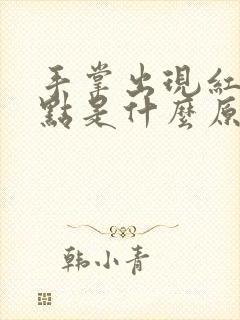 手掌出現紅
點是什麼原
韩小青